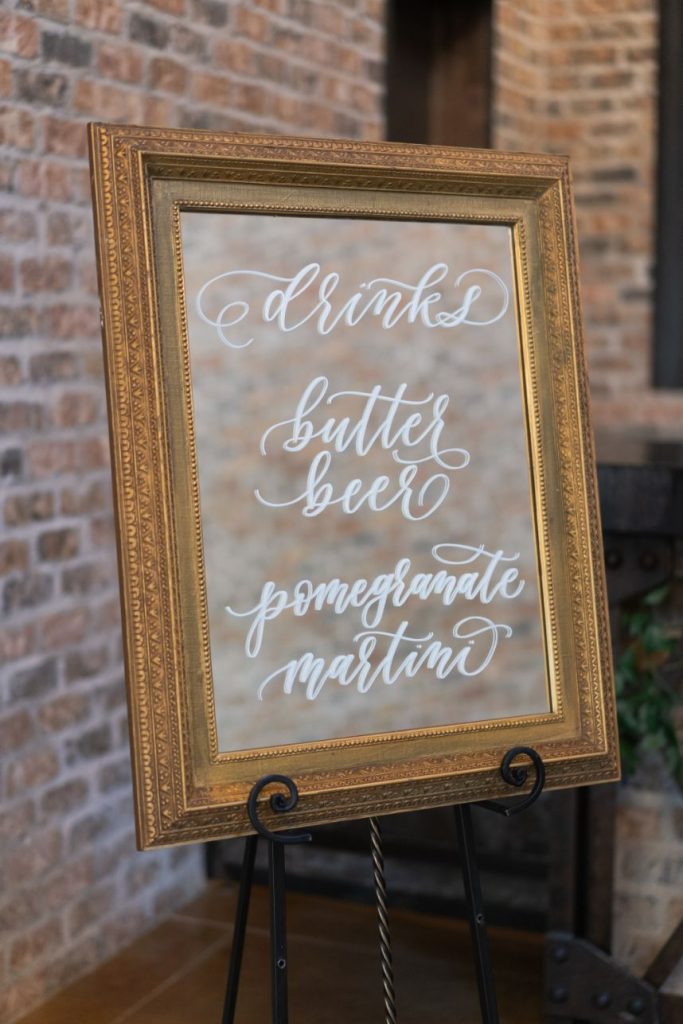 drinks
butter
beer
pomegranate
martini